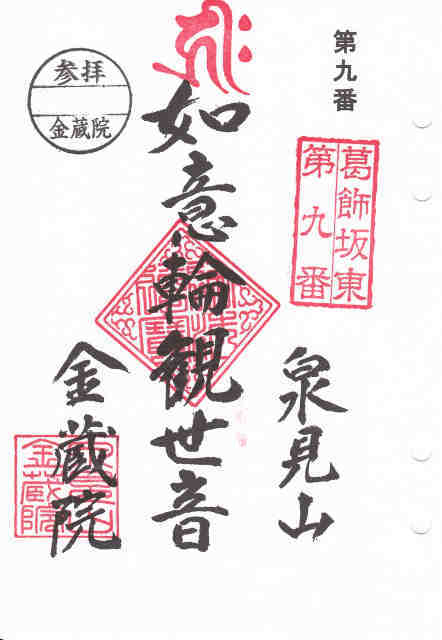 第九番
葛飾坂東
第九番
泉見山
如意輪観世音
金蔵院
参拝
金蔵院